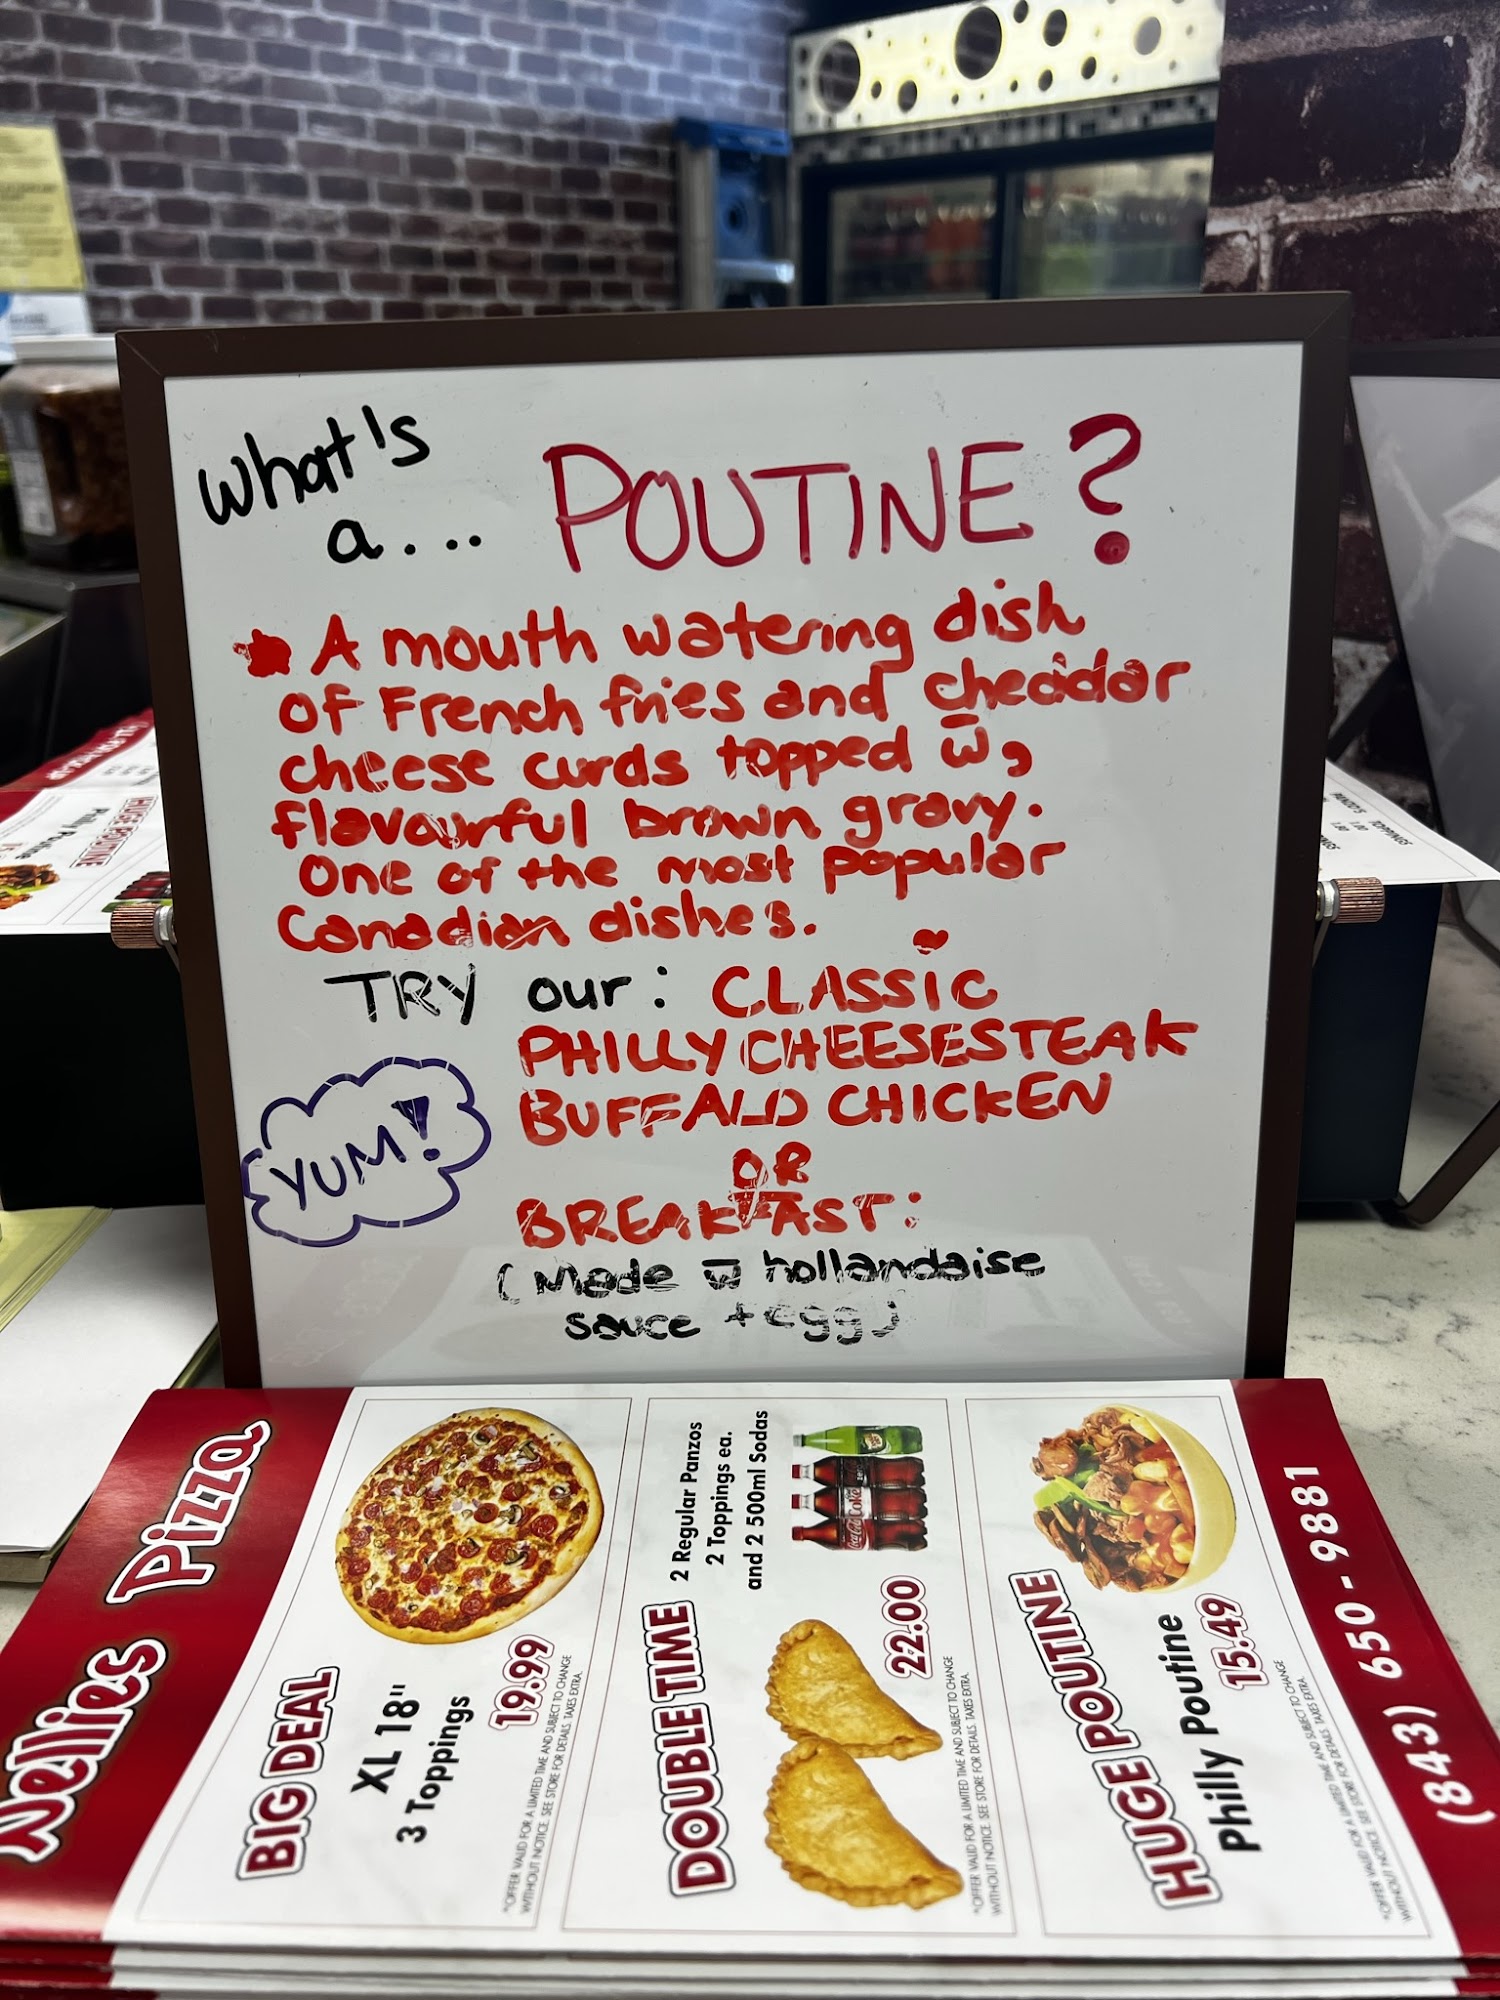 What's
a... POUTINE?
A mouth watering dish
of French fries and cheddar
cheese curds topped w̅,
flavourful brown gravy.
One of the most popular
Canadian dishes.
TRY our: CLASSIC
PHILLY CHEESESTEAK
BUFFALO CHICKEN
OR
BREAKFAST:
YUM!
(Made w̅ hollandaise
sauce + egg)
Nellies Pizza
BIG DEAL
XL 18"
3 Toppings
19.99
*OFFER VALID FOR A LIMITED TIME AND SUBJECT TO CHANGE
WITHOUT NOTICE. SEE STORE FOR DETAILS. TAXES EXTRA.
DOUBLE TIME
2 Regular Panzos
2 Toppings ea.
and 2 500ml Sodas
Coca-Cola
22.00
*OFFER VALID FOR A LIMITED TIME AND SUBJECT TO CHANGE
WITHOUT NOTICE. SEE STORE FOR DETAILS. TAXES EXTRA.
HUGE POUTINE
Philly Poutine
15.49
*OFFER VALID FOR A LIMITED TIME AND SUBJECT TO CHANGE
WITHOUT NOTICE. SEE STORE FOR DETAILS. TAXES EXTRA.
(843) 650-9881
HUGE POUTINE
Philly Poutine